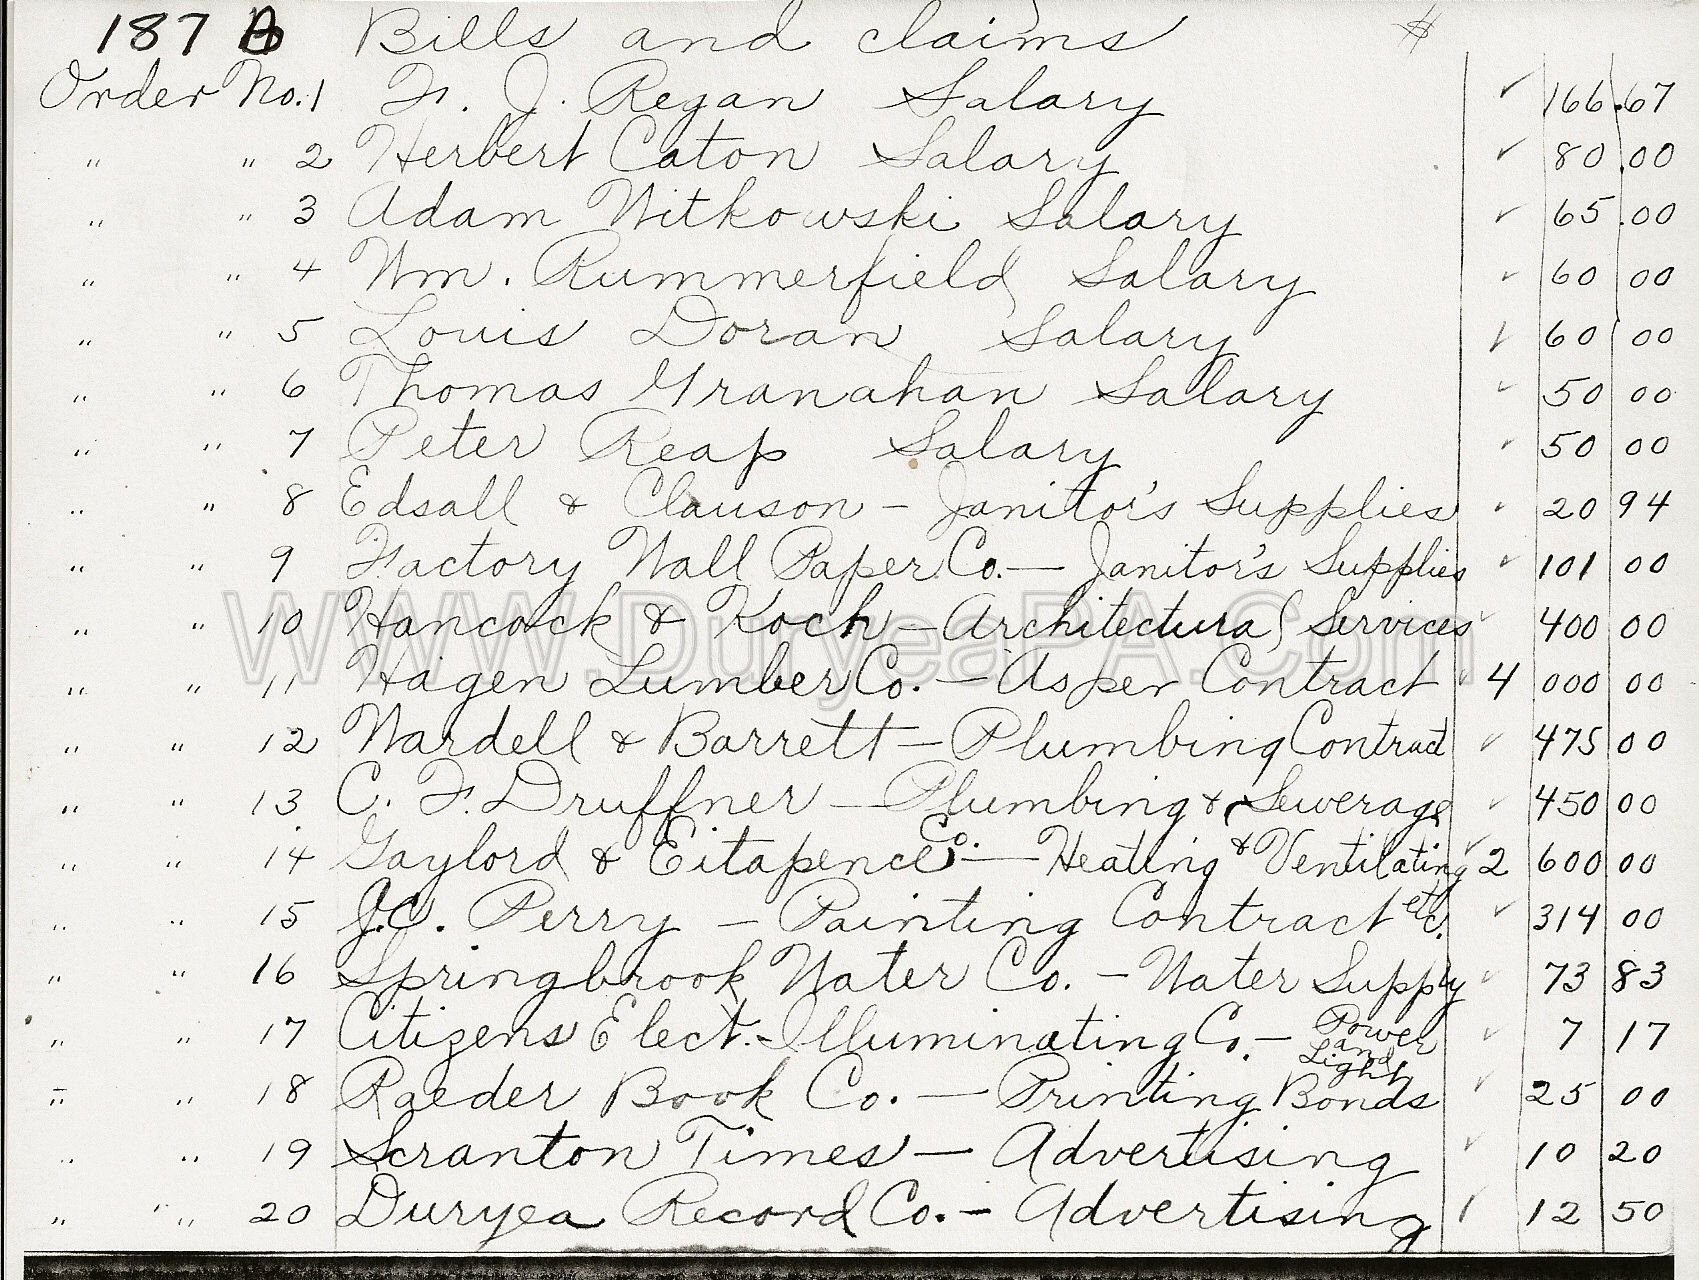 187 B Bills and claims $
Order No. 1 F. J. Regan Salary ✓ 166.67
" " 2 Herbert Caton Salary ✓ 80.00
" " 3 Adam Witkowski Salary ✓ 65.00
" " 4 Wm. Rummerfield Salary ✓ 60 00
" " 5 Louis Doran Salary ✓ 60 00
" " 6 Thomas Granahan Salary ✓ 50 00
" " 7 Peter Reap Salary ✓ 50 00
" " 8 Edsall & Clauson - Janitor's Supplies ✓ 20 94
" " 9 Factory Wall Paper Co. — Janitor's Supplies ✓ 101 00
" " 10 Hancock & Koch — Architectural Services ✓ 400 00
www.DuryeaPA.com
" " 11 Hagen Lumber Co. — As per Contract ✓ 4 000 00
" " 12 Wardell & Barrett — Plumbing Contract ✓ 475 00
" " 13 C. F. Druffner — Plumbing & Sewerage ✓ 450 00
" " 14 Gaylord & Eitapence Co. — Heating & Ventilating ✓ 2 600 00
" " 15 J.C. Perry — Painting Contract etc. ✓ 314 00
" " 16 Springbrook Water Co. - Water Supply ✓ 73 83
" " 17 Citizens Elect. Illuminating Co. - Power and Light ✓ 7 17
" " 18 Raeder Book Co. — Printing Bonds ✓ 25 00
" " 19 Scranton Times — Advertising ✓ 10 20
" " 20 Duryea Record Co. - Advertising ✓ 12 50